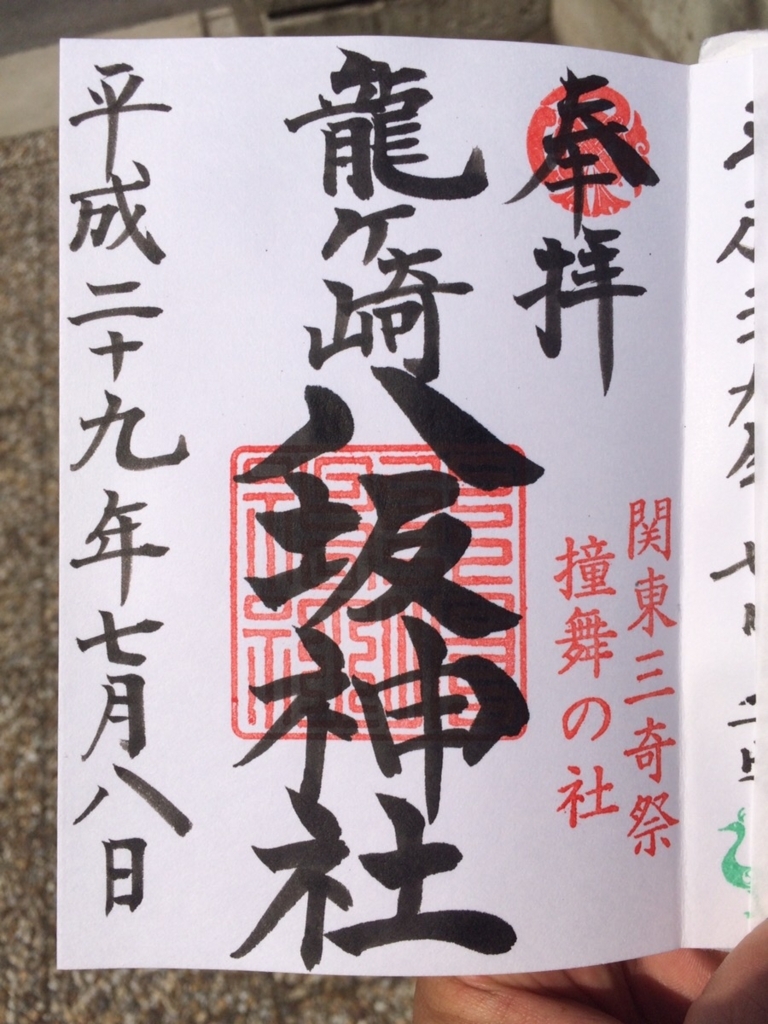 奉拝
関東三奇祭
撞舞の社
龍ヶ崎
八坂神社
平成二十九年七月八日